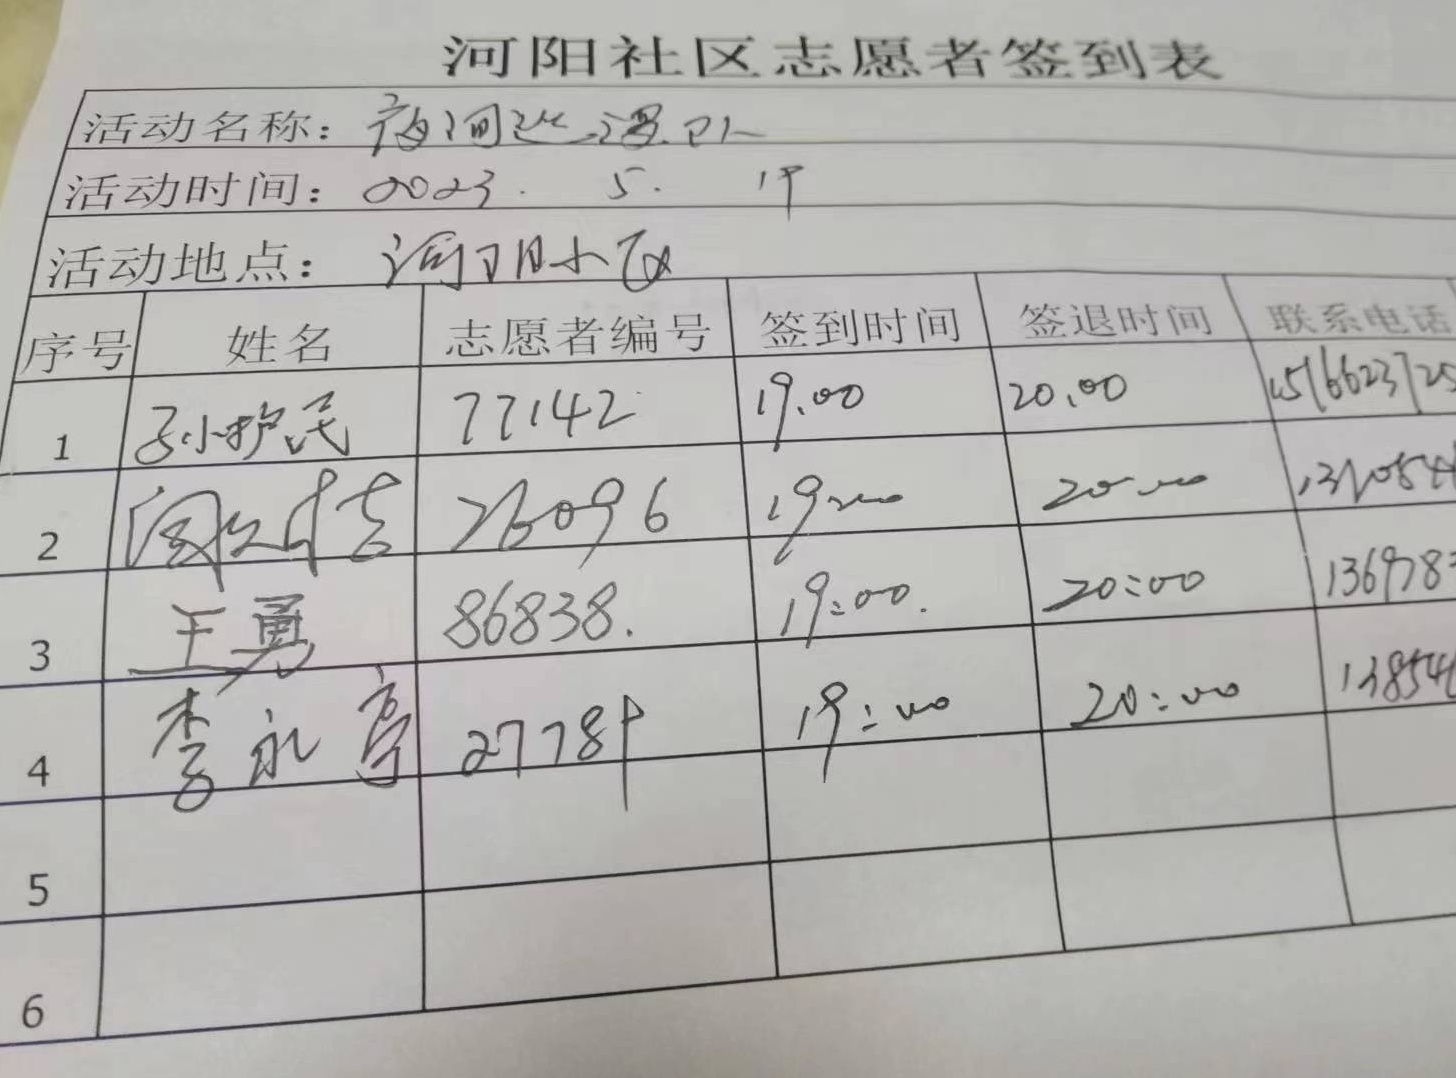 河阳社区志愿者签到表
活动名称：夜间巡逻
活动时间：2023. 5. 19
活动地点：河阳小区
序号 姓名 志愿者编号 签到时间 签退时间 联系电话
1 孙护民 77142 19.00 20.00
2 26096 19:00 20:00
3 王勇 86838. 19:00. 20:00
4 李永亭 27789 19:00 20:00
5
6